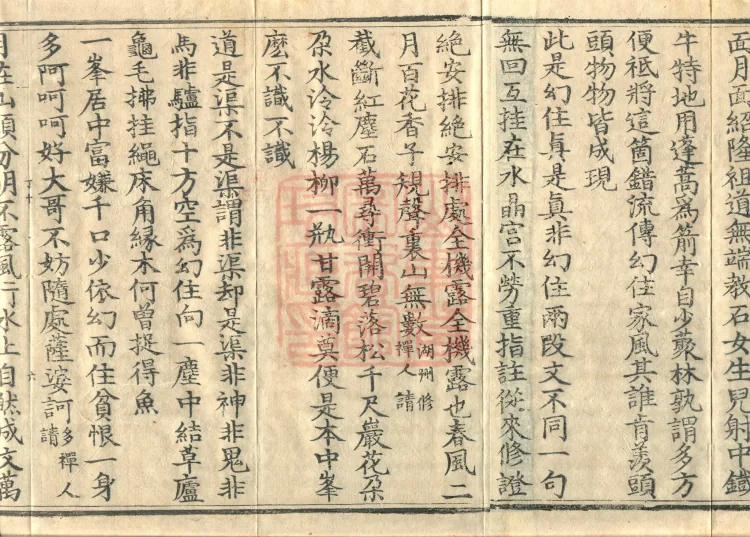 面月面紹隆祖道無端教石女生兒射中鐵
牛特地用蓬蒿爲箭幸自少䕺林孰謂多方
便祇將這箇錯流傳幻住家風其誰肯羨頭
頭物物皆成現
此是幻住眞是眞非幻住兩段文不同一句
無回互挂在水晶宫不勞重指註從來修證
絶安排絶安排處全機露全機露也春風二
月百花香子規聲裏山無數湖州修禪人請
截斷紅塵石萬尋衝開碧落松千尺巖花朶
朶水泠泠楊柳一瓶甘露滴莫便是本中峯
麽不識不識
道是渠不是渠謂非渠却是渠非神非鬼非
馬非驢指十方空爲幻住向一塵中結草廬
龜毛拂挂繩床角緣木何曾捉得魚
一峯居中富嫌千口少依幻而住貧恨一身
多阿呵呵好大哥不妨隨處薩婆訶多禪人請
月在山頭分明不露風行水上自然成文萬